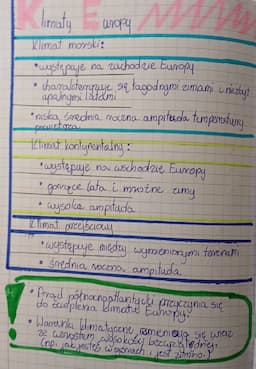 Klimaty Europy
Klimat morski:
• występuje na zachodzie Europy
• charakteryzuje się łagodnymi zimami i niezbyt
upalnymi latami
• niska średnia roczna amplituda temperatury
powietrza
Klimat kontynentalny:
• występuje na wschodzie Europy
• gorące lata i mroźne zimy
• wysoka amplituda
Klimat przejściowy
• występuje między wymienionymi terenami
• średnia roczna amplituda
• Prąd północnoatlantycki przyczynia się
do ocieplenia klimatu Europy.
• Warunki klimatyczne zmieniają się wraz
ze wzrostem wysokości bezwzględnej.
(np. jak jesteś w górach, jest zimno.)